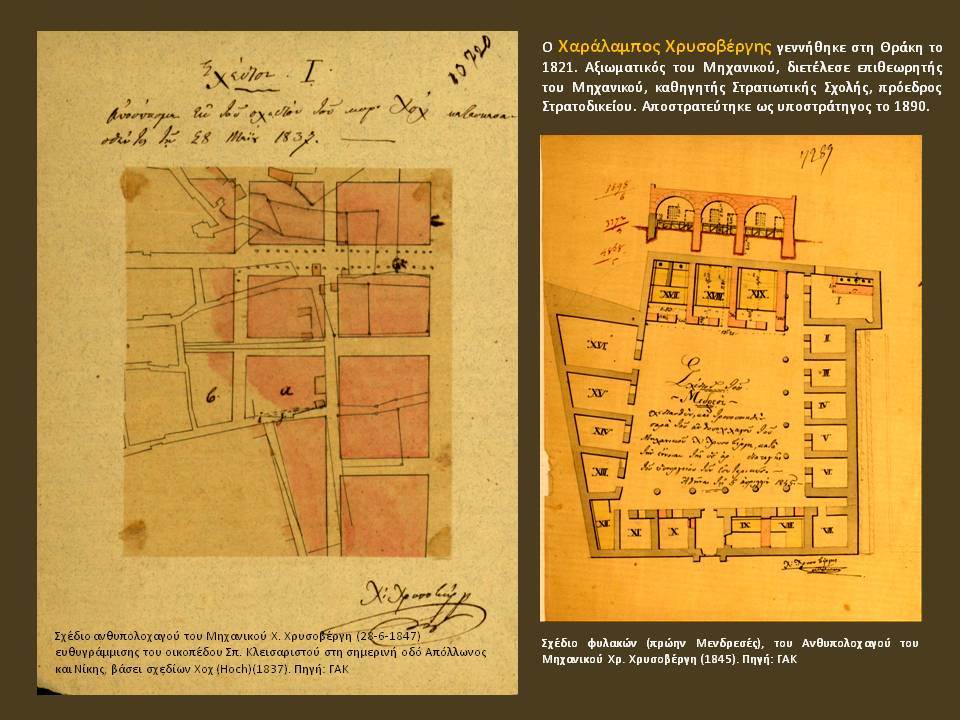 Σχέδιον . Ι.
13720
Απόσπασμα εκ του σχεδίου του κυρ. Χοχ κατασκευα-
σθέντος τη 28 Μαΐου 1837.
β
α
Χ. Χρυσοβέργη
Σχέδιο ανθυπολοχαγού του Μηχανικού Χ. Χρυσοβέργη (28-6-1847)
ευθυγράμμισης του οικοπέδου Σπ. Κλεισαριστού στη σημερινή οδό Απόλλωνος
και Νίκης, βάσει σχεδίων Χοχ (Hoch)(1837). Πηγή: ΓΑΚ
Ο Χαράλαμπος Χρυσοβέργης γεννήθηκε στη Θράκη το
1821. Αξιωματικός του Μηχανικού, διετέλεσε επιθεωρητής
του Μηχανικού, καθηγητής Στρατιωτικής Σχολής, πρόεδρος
Στρατοδικείου. Αποστρατεύτηκε ως υποστράτηγος το 1890.
XVII
XVIII
XIX
I
XVI
II
III
XV
IV
XIV
V
XIII
VI
XII
XI
X
IX
VIII
VII
Σχέδιον του
Μηχανικού Χ. Χρυσοβέργη
Χ. Χρυσοβέργης
Σχέδιο φυλακών (πρώην Μενδρεσές), του Ανθυπολοχαγού του
Μηχανικού Χρ. Χρυσοβέργη (1845). Πηγή: ΓΑΚ